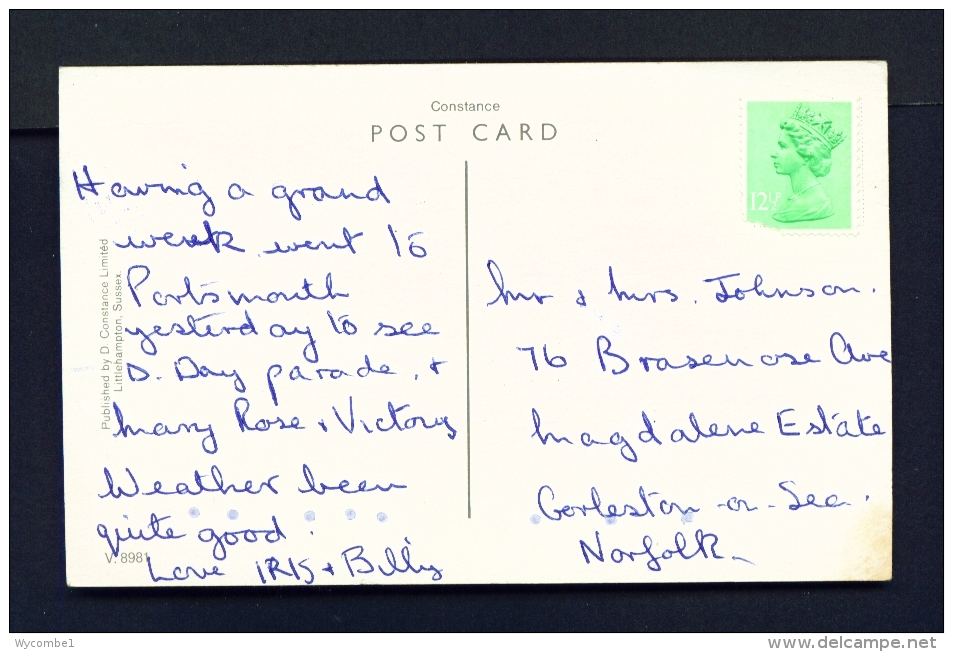 Constance
POST CARD
12½P
Having a grand
week. went to
Portsmouth
yesterday to see
D. Day parade, +
Mary Rose + Victory
Weather been
quite good.
Love IRIS + Billy
Published by D. Constance Limited
Littlehampton, Sussex.
V. 8981
Mr & Mrs. Johnson.
76 Brasenose Ave
Magdalene Estate
Gorleston-on-Sea.
Norfolk
Wycombe1
www.delcampe.net